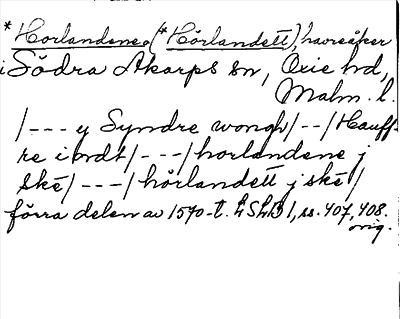 *Horlandene (*Hörlandett), havreåker
i Södra Åkarps sn, Oxie hd,
Malm. l.
/---y Syndre wongh/--/Hauff-
re i ordt/---/horlandene j
skē/---/hörlandett j skē/
förra delen av 1570-t. LSLB 1, ss. 407, 408.
orig.